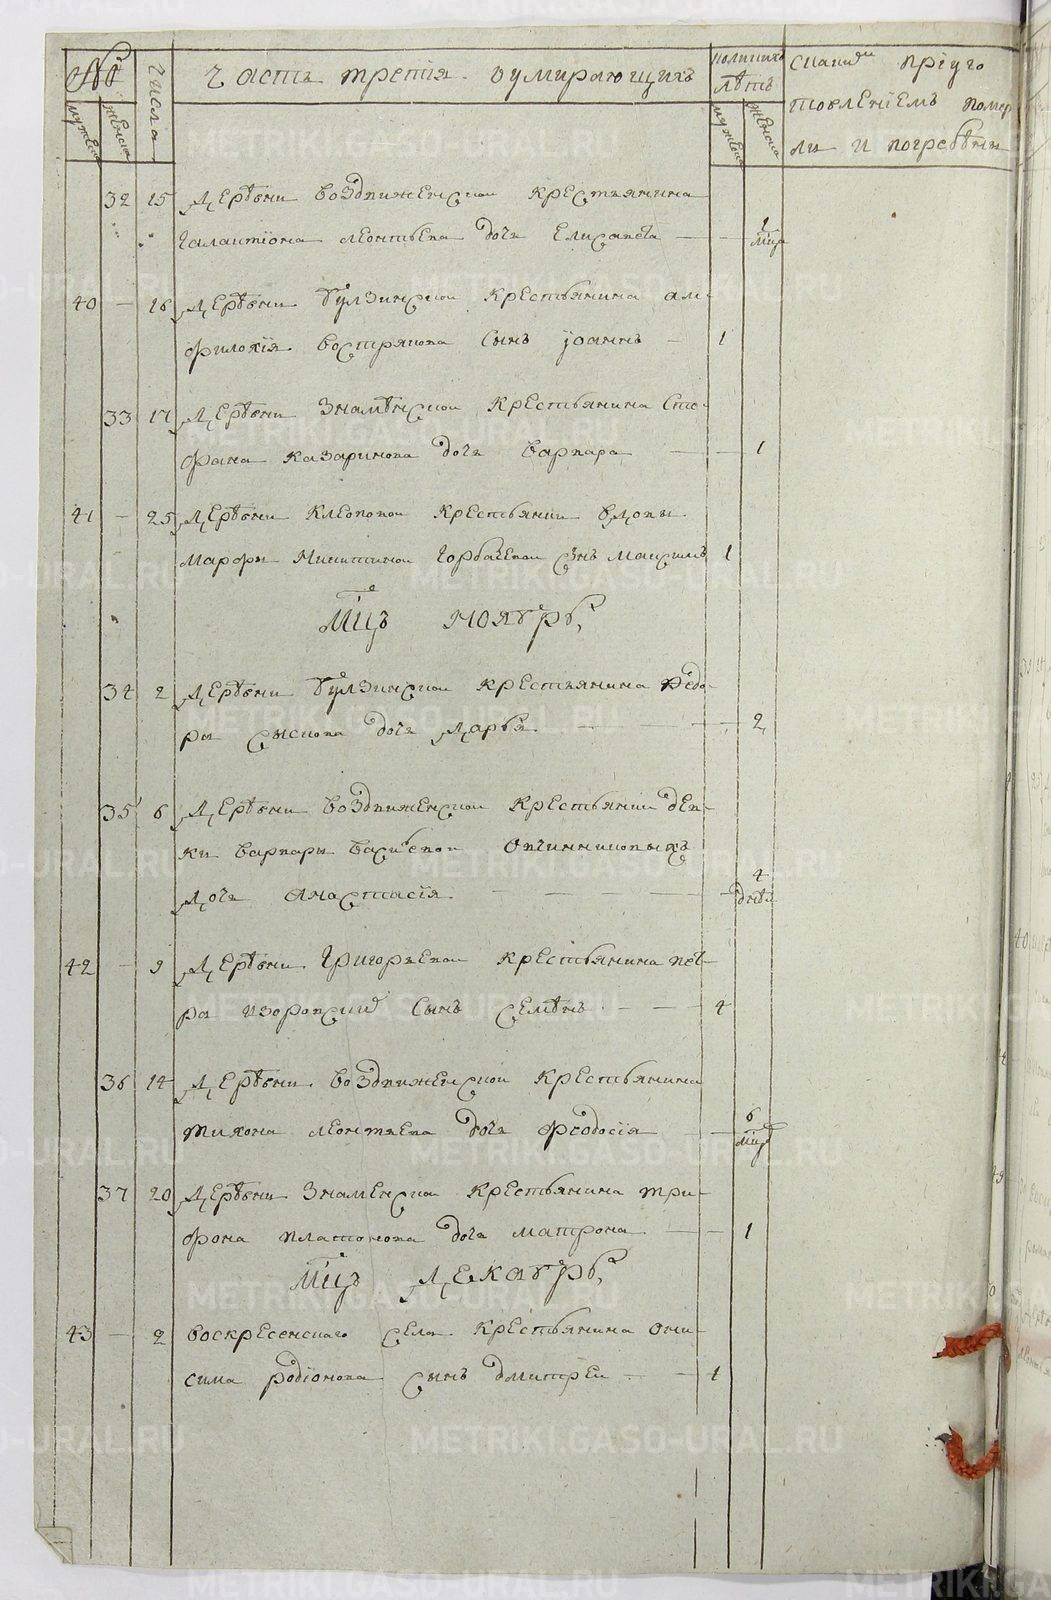 №
мужеск
женска
числа
Часть третия оумирающихъ
коликихъ
лѣтъ
мужеска
женска
с какимъ пріуго
товленіемъ помер
ли и погребѣни
32 15 Дерѣвни воздвиженскои крестьянина
Галантіона леонтьева дочь елисавета — — 1 мца
40 — 16 Дерѣвни бузинскои крестьянина ам-
филохія вострякова сынъ іоаннъ — 1
33 17 Дерѣвни Знамѣнскои крестьянина сте-
фана казаринова дочь варвара — — 1
41 — 25 Дерѣвни Клепопои крестьянки вдовы
марфы Никитинои горбачевои сынъ максимъ 1
Мцъ Ноябрь
34 2 Дерѣвни крестьянина федо-
ра сыскова дочь дарья — — — 2
35 6 Дерѣвни воздвиженскои крестьянки дев-
ки варвары васильевои овчинниковыхъ
дочь анастасія — — — — — 4 дней
42 — 9 Дерѣвни Григорьевои крестьянина пет-
ра изоровскихъ сынъ семѣнъ — — 4
36 14 Дерѣвни воздвиженскои крестьянина
тихона леонтьева дочь феодосія — — 6 мцъ
37 20 Дерѣвни знаменскои крестьянина три-
фона платонова дочь матрона — — 1
Мцъ Декабрь
43 — 2 воскресенскаго села крестьянина они-
сима родіонова сынъ дмитреи — — 1
METRIKI.GASO-URAL.RU